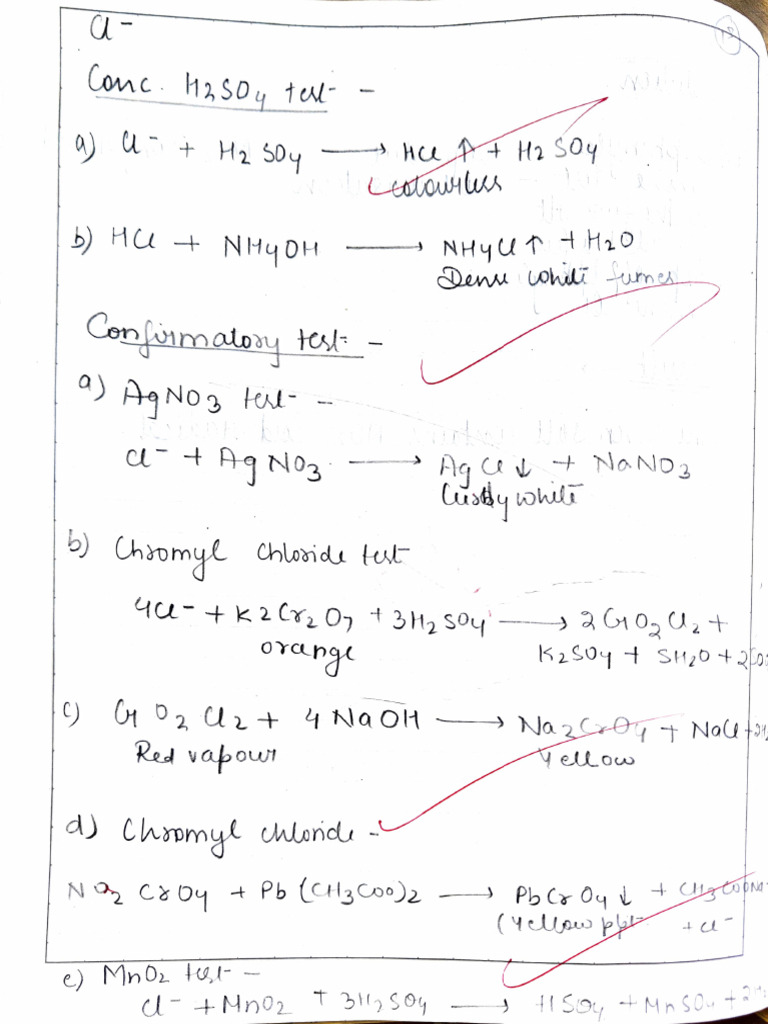 Cl-
Conc. H2SO4 test -
a) Cl- + H2SO4 ⟶ HCl ↑ + H2SO4
colourless
b) HCl + NH4OH ⟶ NH4Cl ↑ + H2O
Dense white fumes
Confirmatory test -
a) AgNO3 test -
Cl- + AgNO3 ⟶ AgCl ↓ + NaNO3
Curdy white
b) Chromyl chloride test
4Cl- + K2Cr2O7 + 3H2SO4 ⟶ 2CrO2Cl2 +
orange K2SO4 + 5H2O +
c) CrO2Cl2 + 4NaOH ⟶ Na2CrO4 + NaCl +
Red vapour Yellow
d) Chromyl chloride -
Na2CrO4 + Pb(CH3COO)2 ⟶ PbCrO4 ↓ + CH3COONa
(Yellow ppt + Cl-
e) MnO2 test -
Cl- + MnO2 + 3H2SO4 ⟶ HSO4 + MnSO4 +